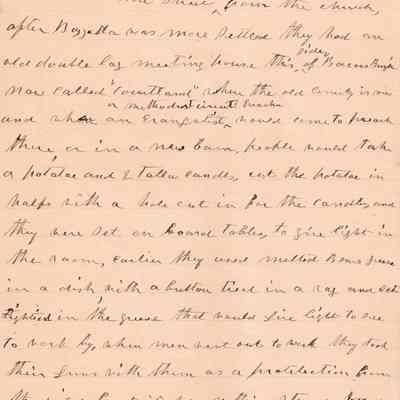 from the church,
after Bozzetta was more settled they had an
old double log meeting house this side of Bacus Bush
now called "Courtland" where the old County is now
and when an Evangelist, or a methodist circuit Preacher would come to preach
there, or in a new barn, people would take
a potatoe and 2 tallow candles, cut the potatoe in
halfs with a hole cut in for the candles, and
they were set on board tables, to give light in
the room, earlier they used melted Bears grease
in a dish, with a button tied in a rag and set
lighted in the grease that would give light to see
to work by, when men went out to work they took
their Guns with them as a protection from